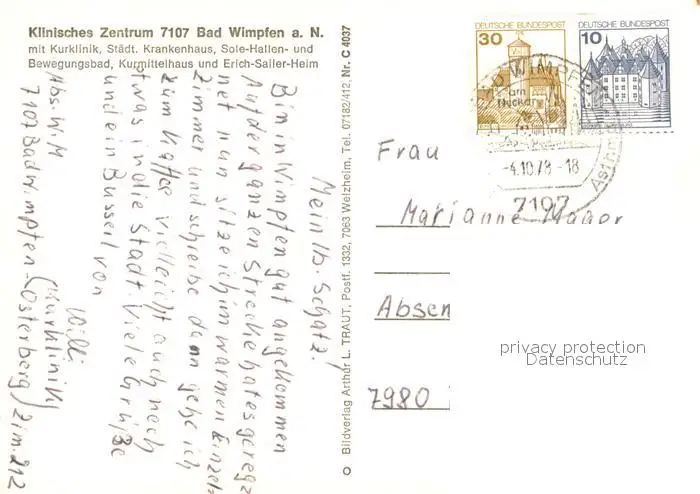 Klinisches Zentrum 7107 Bad Wimpfen a. N.
mit Kurklinik, Städt. Krankenhaus, Sole-Hallen- und
Bewegungsbad, Kurmittelhaus und Erich-Sailer-Heim
Mein lb. Schatz!
Bin in Wimpfen gut angekommen
Auf der ganzen Strecke hat es gereg=
net nun sitze ich im warmen Einzel=
zimmer und schreibe dann gehe ich
zum Kaffee vielleicht auch noch
etwas in die Stadt. Viele Grüße
und ein Bussel von
Willi
Abs. W. M
7107 Bad Wimpfen (Kurklinik)
(Osterberg) Zim. 212
© Bildverlag Arthur L. TRAUT, Postf. 1332, 7063 Welzheim, Tel. 07182/412, Nr. C 4037
DEUTSCHE BUNDESPOST
30
DEUTSCHE BUNDESPOST
10
BAD WIMPFEN
am Neckar
Asthm
-4.10.78-18
7107
Frau
Marianne
Absen
7980
privacy protection
Datenschutz